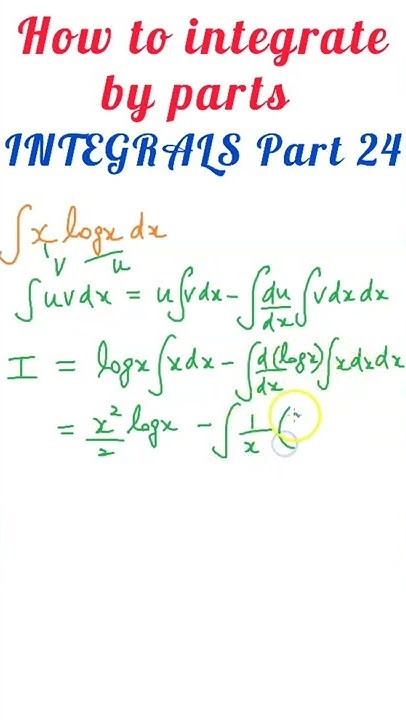 How to integrate
by parts
INTEGRALS Part 24
∫ x log x dx
v u
∫ u v dx = u ∫ v dx - ∫ du/dx ∫ v dx dx
I = log x ∫ x dx - ∫ d(log x)/dx ∫ x dx dx
= x²/2 log x - ∫ 1/x (